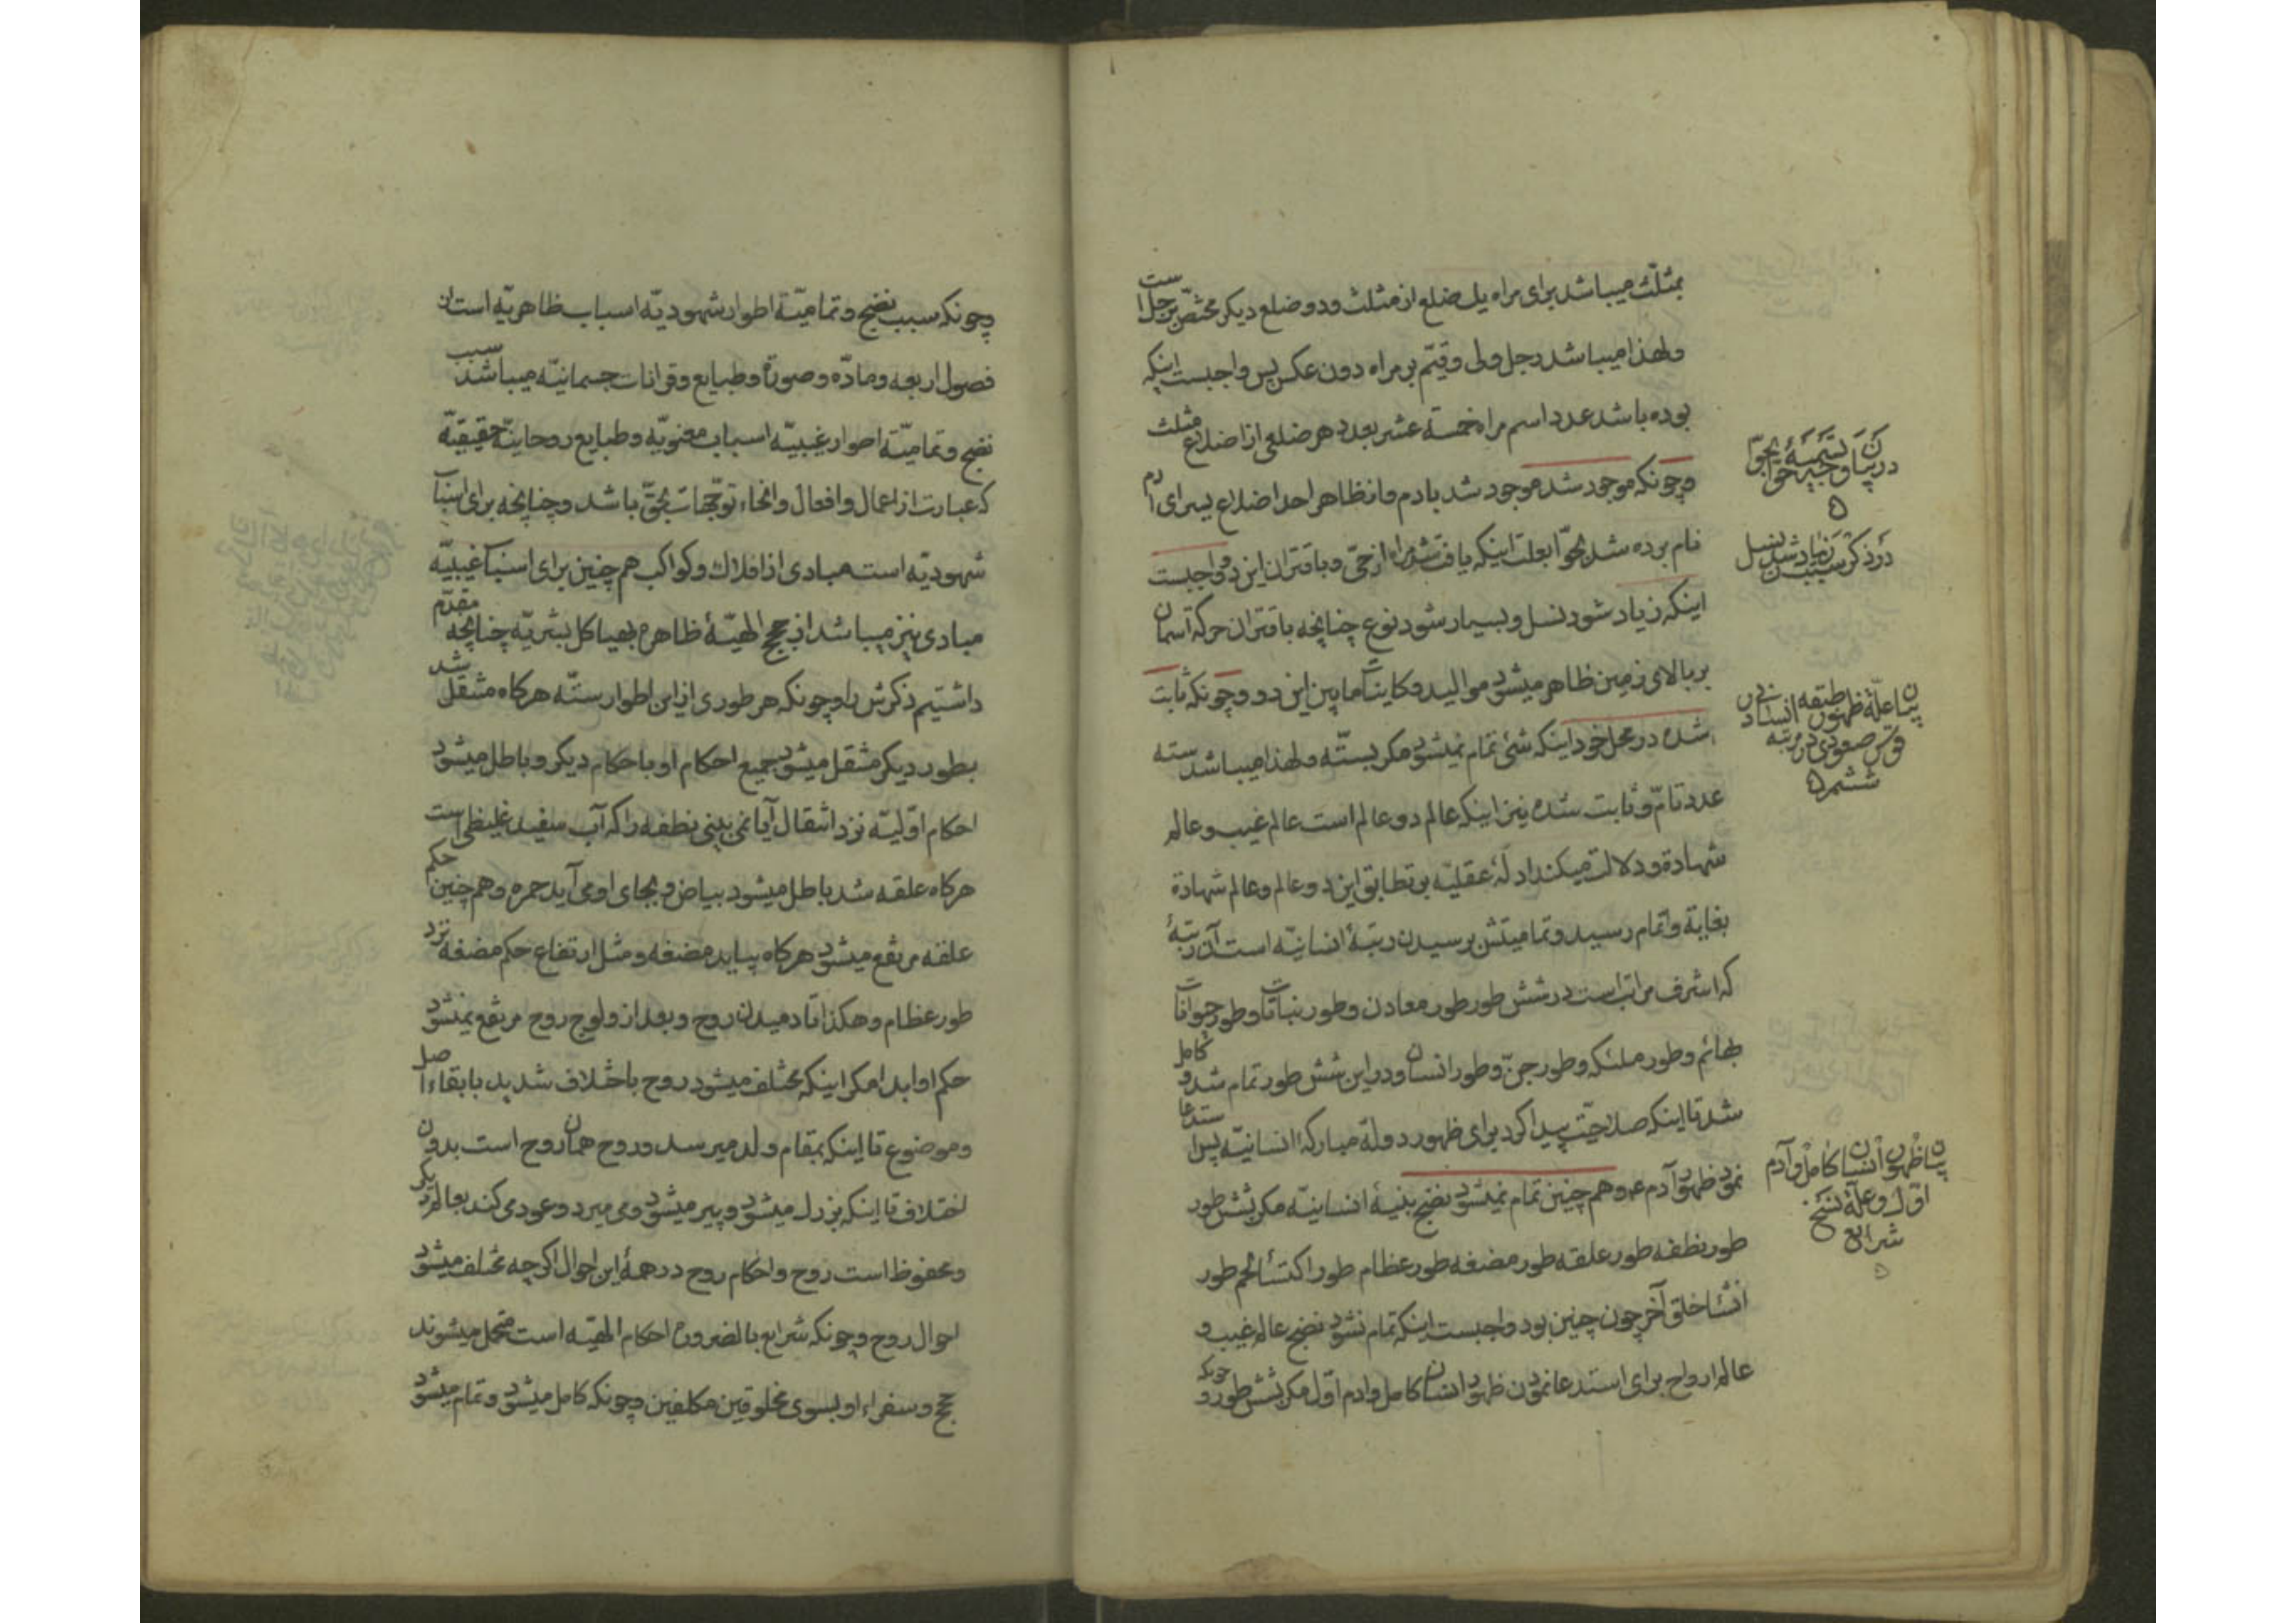 بمثلّث میباشد برای مراه یك ضلع از مثلث ودو ضلع دیکر مختصّ برجل است
ولهذا میباشد رجل ولی وقیّم بر مراه دون عکس پس واجبست اینکه
بوده باشد عدد اسم مراه خمسة عشر بعدد هر ضلعی از اضلاع مثلث
وچونکه موجود شد موجود شد بادم وانظاهر احد اضلاع یسرای ادم
نام برده شد بحوّا بعلت اینکه یافت شد مراه از حیّ وباقتران این دو واجبست
اینکه زیاد شود نسل وبسیار شود نوع چنانچه باقتران حرکة اسمان
بر بالای زمین ظاهر میشود موالید وکاینات مابین این دو وچونکه ثابت
شده در محل خود اینکه شئ تمام نمیشود مکر بستّه ولهذا میباشد سته
عدد تامّ وثابت شده نیز اینکه عالم دو عالم است عالم غیب وعالم
شهادة ودلالت میکند ادلّهٔ عقلیّه بر تطابق این دو عالم وعالم شهادة
بغایة واتمام رسید وتمامیتش برسیدن رتبهٔ انسانیّه است آن رتبهٔ
که اشرف مراتب است در شش طور طور معادن وطور نباتات وطور حیوانات
بهائم وطور ملئکه وطور جنّ وطور انسان ودر این شش طور تمام شد وکامل
شد تا اینکه صلاحیّت پیدا کرد برای ظهور دولة مبارکهٔ انسانیّه پس استدعا
نمود ظهور آدم ع وهم چنین تمام نمیشود نضج بنیهٔ انسانیّه مکر بشش طور
طور نطفه طور علقه طور مضغه طور عظام طور اکتسٔا لحم طور
انشٔا خلق آخر چون چنین بود واجبست اینکه تمام نشود نضج عالم غیب و
عالم ارواح برای استدعا نمودن ظهور انسان کامل وادم اوّل مکر بشش طور و چونکه
در بیان وجه تسمیهٔ حوّا بحوّا
در ذکر سبب زیاد شدن نسل
بیان علّة ظهور طبقه انسان در
قوس صعودی در مرتبه
ششم
بیان ظهور انسان کامل وآدم
اوّل وعلّة نسخ
شرایع
وچونکه سبب نضج وتمامیّة اطوار شهودیّه اسباب ظاهریّه است از
فصول اربعه ومادّه وصورة وطبایع وقرانات جسمانیّه میباشد سبب
نضج وتمامیّة اطوار غیبیّه اسباب معنویّه وطبایع روحانیّه حقیقیّة
که عبارت از اعمال وافعال وانحاء توجّهات بحقّ باشد وچنانچه برای اسباب
شهودیّه است مبادی از افلاك وکواکب هم چنین برای اسباب غیبیّه
مبادی نیز میباشد از حجج الهیّهٔ ظاهره بهیاکل بشریّه چنانچه مقدّم
داشتیم ذکرش را وچونکه هر طوری از این اطوار ستّه هرکاه منتقل شد
بطور دیکر منتقل میشود جمیع احکام او باحکام دیکر وباطل میشود
احکام اوّلیّه نزد انتقال آیا نمی بینی نطفه را که آب سفید غلیظی است
هرکاه علقه شد باطل میشود بیاض وبجای او می آید حمره وهم چنین حکم
علقه مرتفع میشود هرکاه بیاید مضغه ومثل ارتفاع حکم مضغه نزد
طور عظام وهکذا تا دمیدن روح وبعد از ولوج روح مرتفع نمیشود
حکم او ابدا مکر اینکه مختلف میشود روح باختلاف شدید با بقاء اصل
وموضوع تا اینکه بمقام ولد میرسد وروح همان روح است بدون
اختلاف تا اینکه بزرك میشود وپیر میشود ومی میرد وعود می کند بعالم دیکر
ومحفوظ است روح واحکام روح در همهٔ این احوال اکرچه مختلف میشود
احوال روح وچونکه شرایع بالضروره احکام الهیّه است متحمل میشوند
حجج وسفراء او بسوی مخلوقین مکلفین وچونکه کامل میشود وتمام میشود